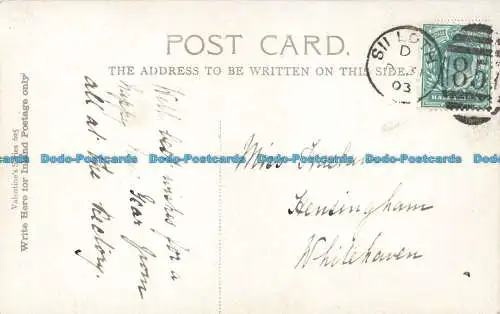 POST CARD.
THE ADDRESS TO BE WRITTEN ON THIS SIDE.
SILLOTH
D
03
185
HALFPENNY
Valentine's Series
Write Here for Inland Postage only
With best wishes for a
Happy New Year from
all at the Rectory.
Miss
Hensingham
Whitehaven
Dodo-Postcards Dodo-Postcards Dodo-Postcards Dodo-Postcards Dodo-Postcards